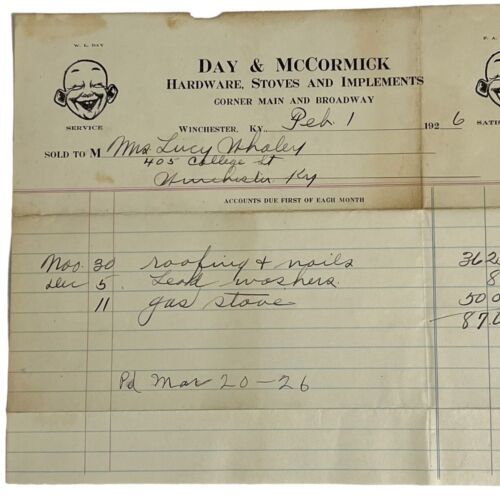 W. L. DAY
F. A.
DAY & MCCORMICK
HARDWARE, STOVES AND IMPLEMENTS
CORNER MAIN AND BROADWAY
SERVICE
SATIS
WINCHESTER, KY., Feb. 1 1926
SOLD TO M Mrs Lucy Whaley
405 College St
Winchester Ky
ACCOUNTS DUE FIRST OF EACH MONTH
Nov. 30 roofing + nails 362
Dec 5. Lead washers. 8
11 gas stove 500
870
Pd Mar 20-26